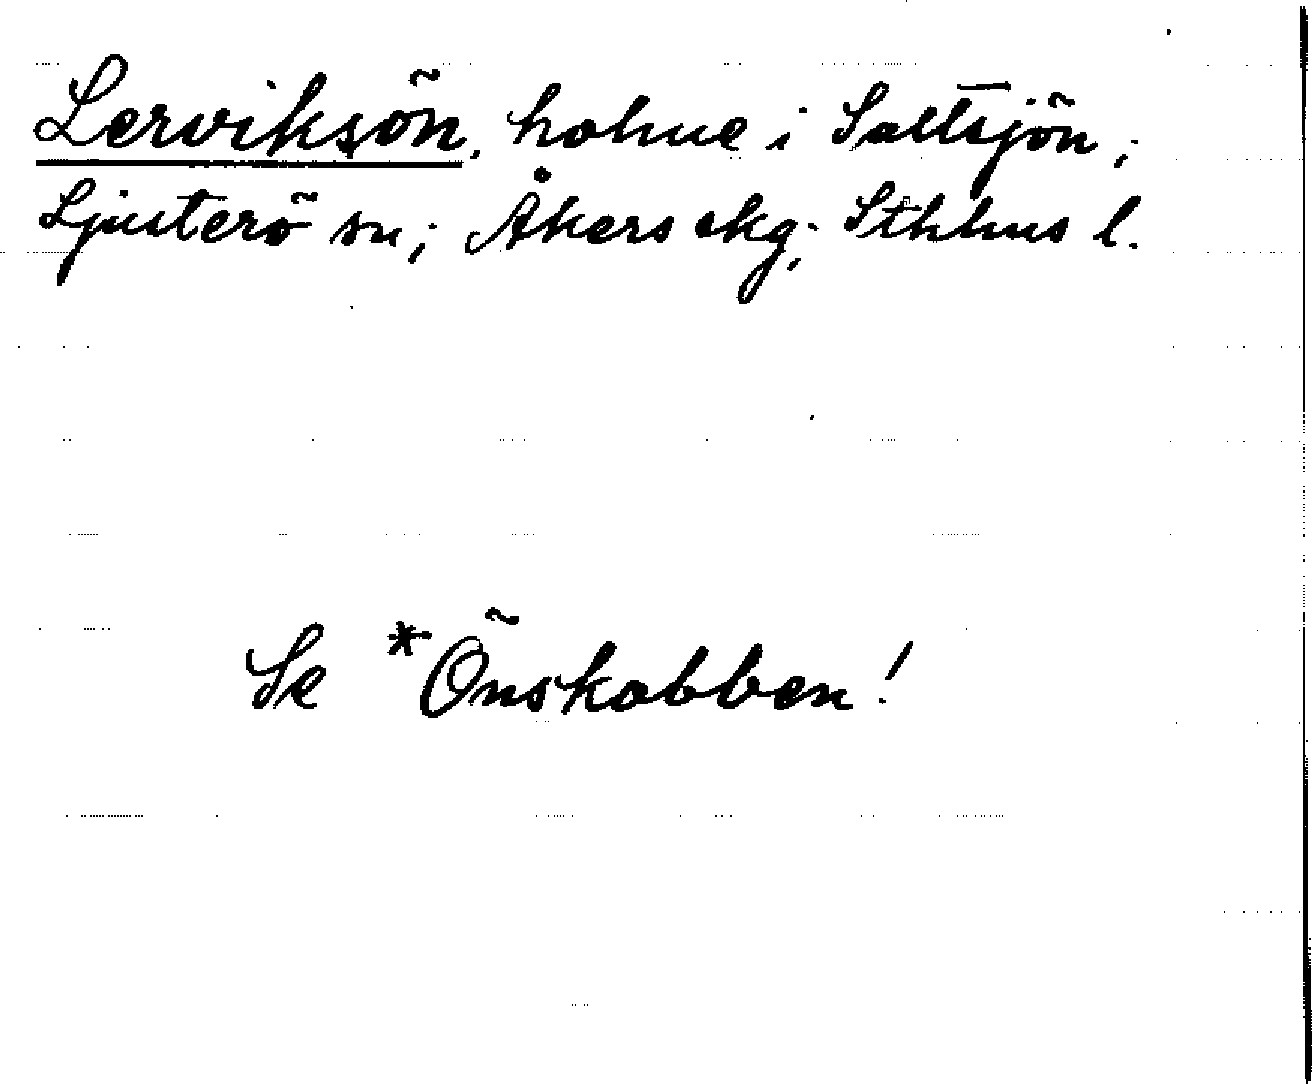 Lerviksön, holme i Saltsjön;
Ljusterö sn; Åkers skg; Sthlms l.
Se *Önskobben!